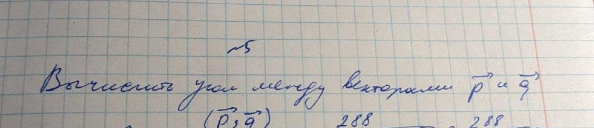 №5
Вычислить угол между векторами p⃗ и q⃗
(p⃗; q⃗) 288 288